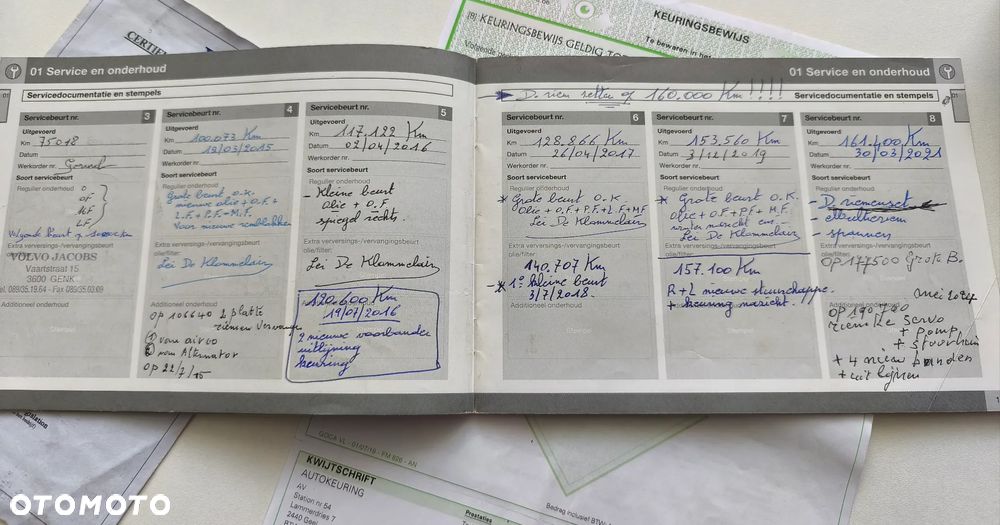 CERTIFI
KEURINGSBEWIJS
Te bewaren in het
(B) KEURINGSBEWIJS GELDIG TOT
Volgende
01 Service en onderhoud
Servicedocumentatie en stempels
Servicebeurt nr. 3
Uitgevoerd
Km 75018
Datum
Werkorder nr.
Soort servicebeurt
Regulier onderhoud
O
OF
MF
LF
Volgende beurt
Extra verversings-/vervangingsbeurt
olie/filter:
VOLVO JACOBS
Vaartstraat 15
3600 GENK
Tel. 089/35.19.64 - Fax 089/35.03.69
Additioneel onderhoud
Servicebeurt nr. 4
Uitgevoerd
Km 100.073 Km
Datum 13/03/2015
Werkorder nr.
Soort servicebeurt
Regulier onderhoud
Grote beurt O.K.
nieuwe olie + O.F +
L.F. + P.F. + M.F.
Voor nieuwe remblokken
Extra verversings-/vervangingsbeurt
olie/filter:
Lei De Klammelair
Additioneel onderhoud
OP 106640 2 platte
riemen Vervangen
① van airco
② van Alternator
OP 22/7/15
Servicebeurt nr. 5
Uitgevoerd
Km 117.122 Km
Datum 02/04/2016
Werkorder nr.
Soort servicebeurt
Regulier onderhoud
- Kleine beurt
Olie + O.F
spiegel rechts.
Extra verversings-/vervangingsbeurt
olie/filter:
Lei De Klammelair
120.600 Km
19/07/2016
2 nieuwe voorbanden
uitlijning
keuring
01 Service en onderhoud
D. riem zetten op 160.000 Km !!!!!
Servicedocumentatie en stempels
01
Servicebeurt nr. 6
Uitgevoerd
Km 128.866 Km
Datum 26/04/2017
Werkorder nr.
Soort servicebeurt
Regulier onderhoud
* Grote beurt O.K.
Olie + O.F. + P.F. + L.F. + M.F
Lei De Klammelair
Extra verversings-/vervangingsbeurt
olie/filter:
140.707 Km
* 1° kleine beurt
3/7/2018.
Additioneel onderhoud
Stempel
Servicebeurt nr. 7
Uitgevoerd
Km 153.560 Km
Datum 3/12/2019
Werkorder nr.
Soort servicebeurt
Regulier onderhoud
* Grote beurt O.K.
Olie + O.F + P.F + M.F.
Lei De Klammelair
Extra verversings-/vervangingsbeurt
olie/filter:
157.100 Km
R + L nieuwe stuurschappe.
+ keuring nazicht.
Stempel
Servicebeurt nr. 8
Uitgevoerd
Km 161.400 Km
Datum 30/03/2021
Werkorder nr.
Soort servicebeurt
Regulier onderhoud
- D. riemenset
-
- spannen
Extra verversings-/vervangingsbeurt
olie/filter:
OP 177500 Grote B.
Additioneel onderhoud
mei
OP 190.740
riem ke servo
+ pomp
+ stuurhuis
+ 4 nieuw banden
+ uit lijnen
GOCA VL - 01/07/19 - FM 826 - AN
KWIJTSCHRIFT
AUTOKEURING
AV
Station nr 54
Lammerdries 7
2440 Geel
Prestaties
Bedrag inclusief BTW
OTOMOTO